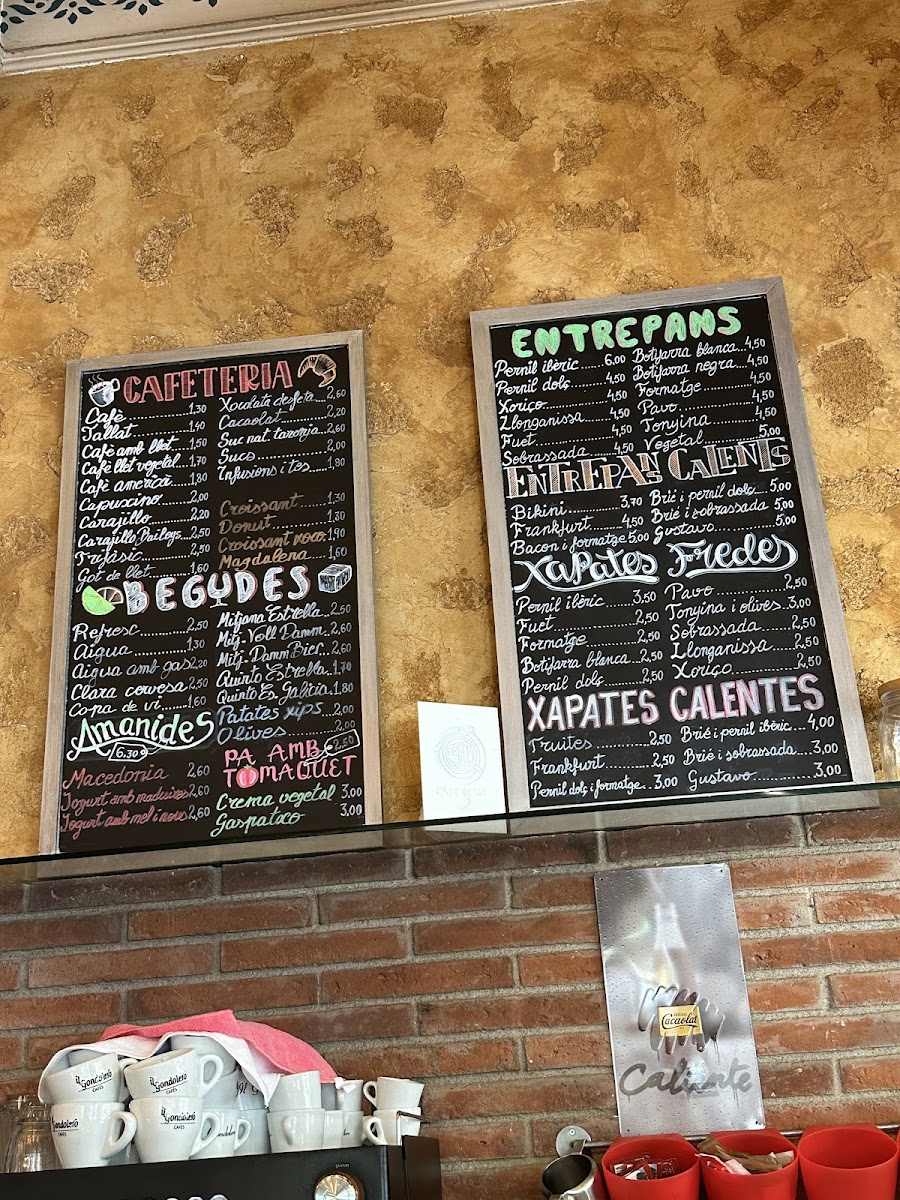 CAFETERIA
Cafè 1,30
Tallat 1,90
Cafè amb llet 1,50
Cafè llet vegetal 1,70
Cafè americà 1,80
Capuxino 2,00
Carajillo 2,20
Carajillo Baileys 2,50
Trifàsic 2,50
Got de llet 1,60
Xocolata desfeta 2,60
Cacaolat 2,20
Suc nat. taronja 2,60
Sucs 2,00
Infusions i tes 1,80
Croissant 1,30
Donut 1,30
Croissant xoco 1,90
Magdalena 1,60
BEGUDES
Refresc 2,50
Aigua 1,30
Aigua amb gas 2,20
Clara cervesa 2,50
Copa de vi 1,60
Mitjana Estrella 2,50
Mitj. Voll Damm 2,60
Mitj. Damm Bier 2,60
Quinto Estrella 1,70
Quinto Es. Galicia 1,80
Patates xips 2,00
Olives 2,00
Amanides
6,30
Macedonia 2,60
Iogurt amb maduixes 2,60
Iogurt amb mel i nous 2,60
PA AMB TOMAQUET
2,50
Crema vegetal 3,00
Gaspatxo 3,00
ENTREPANS
Pernil ibèric 6,00
Pernil dolç 4,50
Xoriço 4,50
Llonganissa 4,50
Fuet 4,50
Sobrassada 4,50
Botifarra blanca 4,50
Botifarra negra 4,50
Formatge 4,50
Pavo 4,50
Tonyina 4,50
Vegetal 5,00
ENTREPANS CALENTS
Bikini 3,70
Frankfurt 4,50
Bacon i formatge 5,00
Brie i pernil dolç 5,00
Brie i sobrassada 5,00
Gustavo 5,00
Xapates Fredes
Pernil ibèric 3,50
Fuet 2,50
Formatge 2,50
Botifarra blanca 2,50
Pernil dolç 2,50
Pavo 2,50
Tonyina i olives 3,00
Sobrassada 2,50
Llonganissa 2,50
Xoriço 2,50
XAPATES CALENTES
Truites 2,50
Frankfurt 2,50
Pernil dolç i formatge 3,00
Brie i pernil ibèric 4,00
Brie i sobrassada 3,00
Gustavo 3,00
Cacaolat
Caliente
il Gondolero
CAFÈS
il Gondolero
CAFÈS
Gondolero
Gondolero
CAFÈS